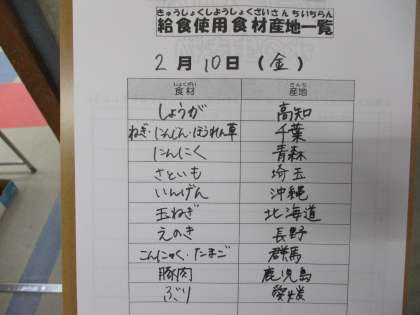 きゅうしょくしようしょくざいさんちいちらん
給食使用食材産地一覧
2月10日(金)
しょくざい さんち
食材 産地
しょうが 高知
ねぎ・にんじん・ほうれん草 千葉
にんにく 青森
さといも 埼玉
いんげん 沖縄
玉ねぎ 北海道
えのき 長野
こんにゃく・たまご 群馬
豚肉 鹿児島
ぶり 愛媛